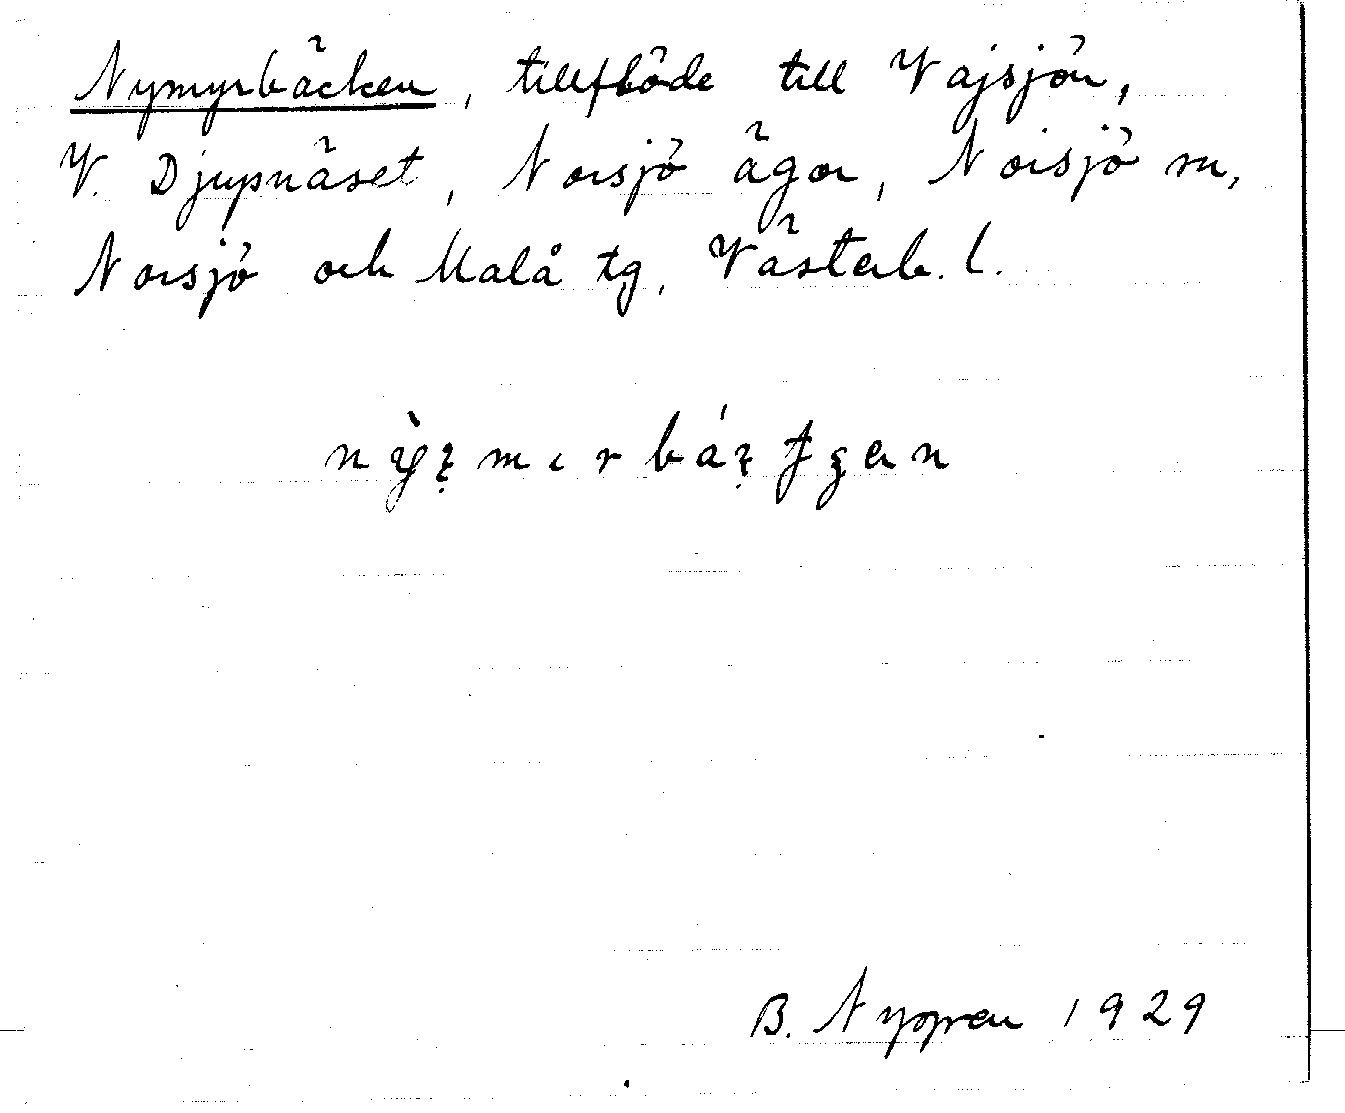 Nymyrbäcken, tillflöde till Vajsjön,
V. Djupnäset, Norsjö ägor, Norsjö sn,
Norsjö och Malå tg, Västerb. l.
B. Nygren 1929